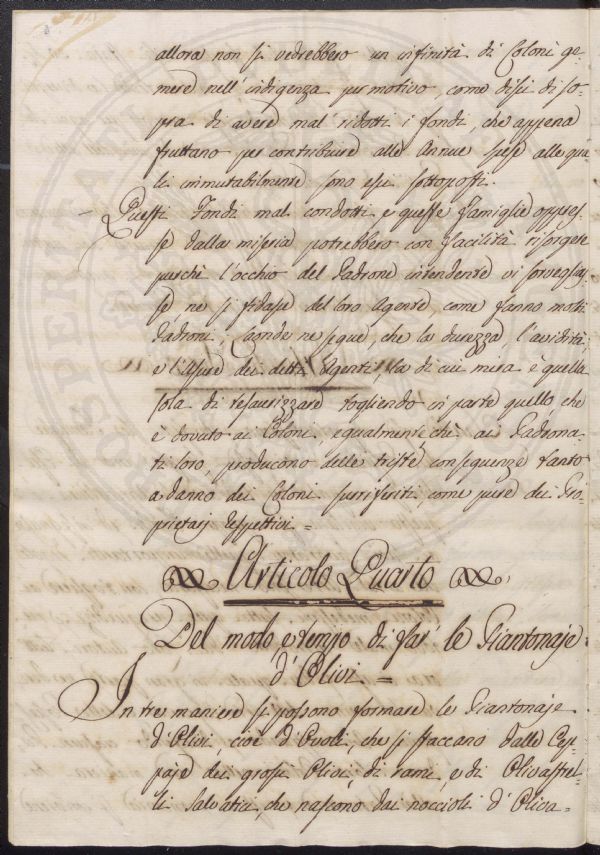 allora non si vedrebbero un infinità di Coloni ge-
mere nell'indigenza per motivo, come dissi di so-
pra di avere mal' ridotti i fondi, che appena
fruttano per contribuire alle Annue spese alle qua-
li immutabilmente sono essi sottoposti.
Questi Fondi mal condotti, e queste Famiglie oppres-
se dalla miseria potrebbero con facilità risorgere
perchè l'occhio del Padrone intendente vi sorveglias-
se, ne si fidasse del loro Agente, come fanno molti
Padroni, Laonde ne segue, che la durezza, l'avidità,
e l' dei detti Agenti, la di cui mira è quella
sola di tesaurizzare togliendo in parte quello, che
è dovuto ai Coloni, egualmente chè ai Padrona-
ti loro, producono delle triste conseguenze tanto
a danno dei Coloni surriferiti, come pure dei Pro-
prietarj respettivi =
Articolo Quarto
Del modo, e tempo di far' le Piantonaje
d'Olivi =
In tre maniere si possono formare le Piantonaje
d'Olivi, cioè d'Ovoli, che si staccano dalle Cep-
paje dei grossi Olivi, di rami, e di Olivastrel-
li salvatici, che nascono dai noccioli d'Oliva =